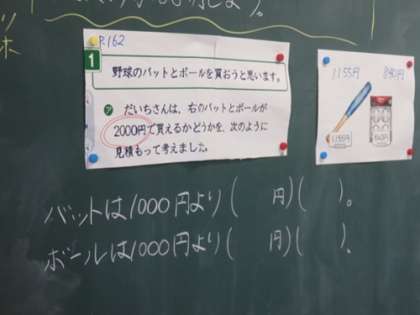 P.162
1
野球のバットとボールを買おうと思います。
ア だいちさんは、右のバットとボールが
2000円で買えるかどうかを、次のように
見積もって考えました。
1155円
バットは1000円より( 円)( )。
ボールは1000円より( 円)( )。